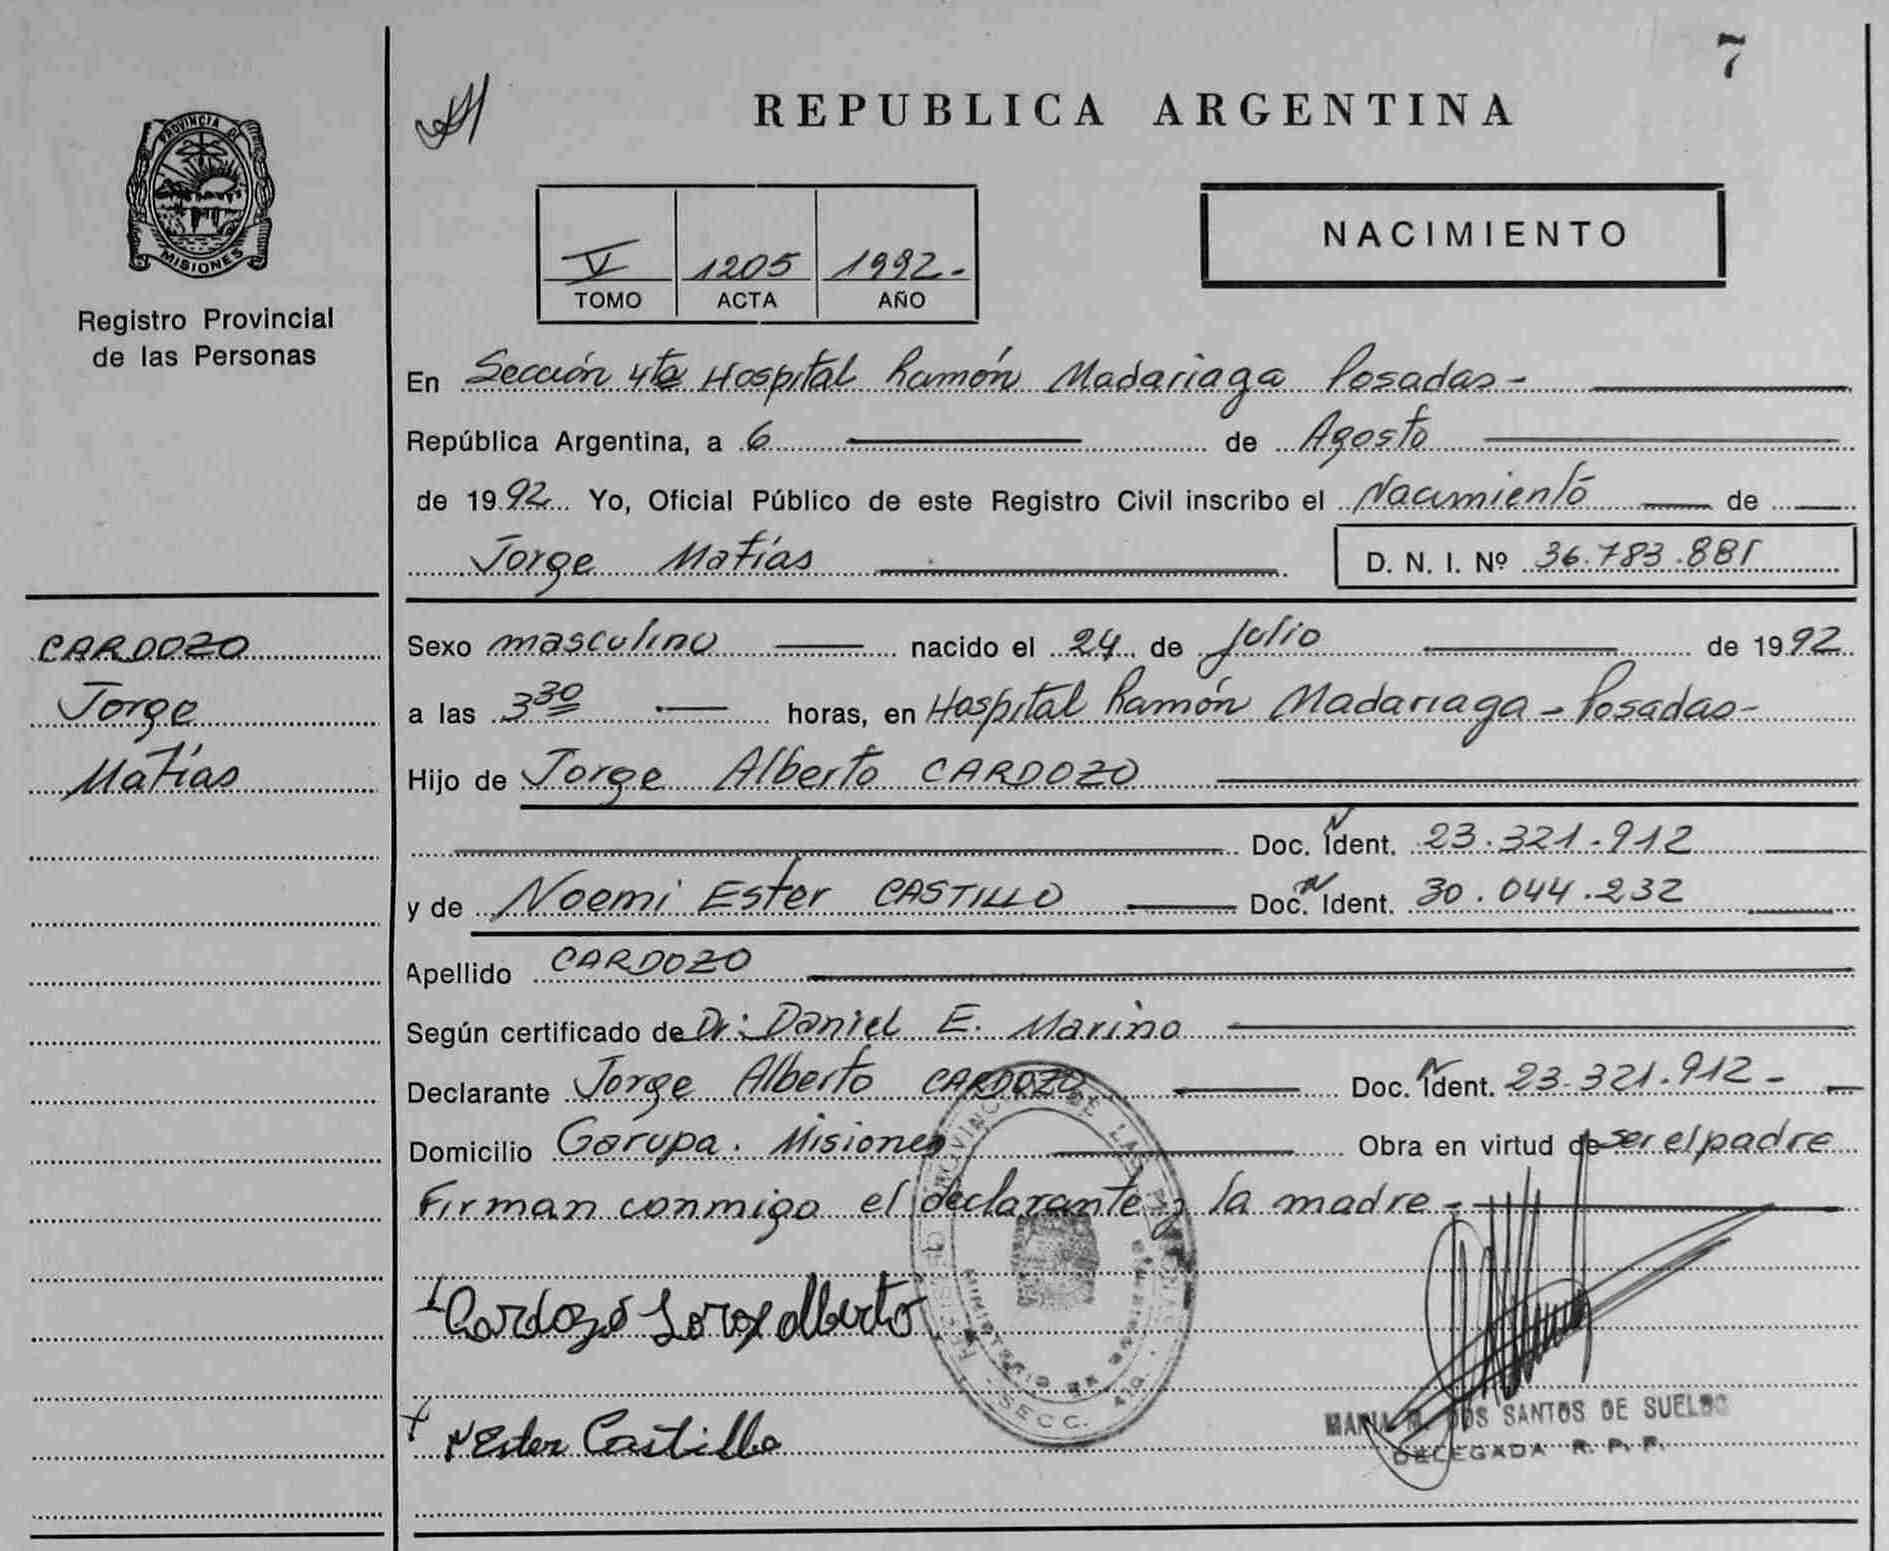 7
REPUBLICA ARGENTINA
PROVINCIA DE
MISIONES
Registro Provincial
de las Personas
V 1205 1992.-
TOMO ACTA AÑO
NACIMIENTO
En Sección 4ta Hospital Ramón Madariaga Posadas-
República Argentina, a 6 de Agosto
de 1992 Yo, Oficial Público de este Registro Civil inscribo el Nacimiento de
Jorge Matías D. N. I. Nº 36.783.881
CARDOZO
Jorge
Matías
Sexo masculino nacido el 24 de Julio de 1992
a las 3 30 horas, en Hospital Ramón Madariaga - Posadas-
Hijo de Jorge Alberto CARDOZO
Doc. Ident. 23.321.912
y de Noemi Ester CASTILLO Doc. Ident. 30.044.232
Apellido CARDOZO
Según certificado de Dr: Daniel E. Marino
Declarante Jorge Alberto CARDOZO Doc. Ident. 23.321.912-
Domicilio Garupa. Misiones Obra en virtud de ser el padre
Firman conmigo el declarante y la madre-
Cardozo Jorge Alberto
N Ester Castillo
SECC. 4ta
MARIA M. DOS SANTOS DE SUELDO
DELEGADA R. P. P.